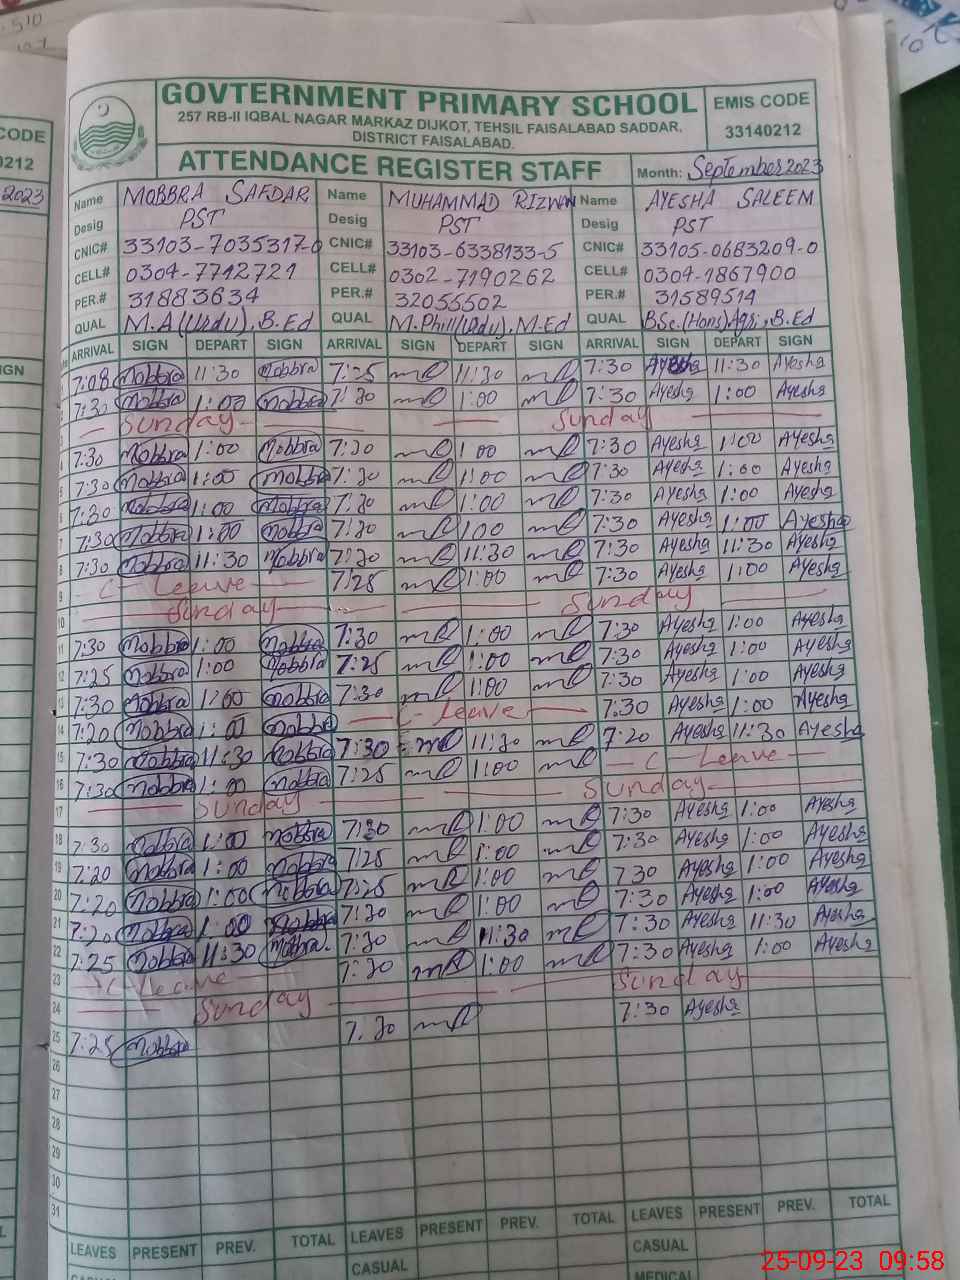 510
CODE
0212
2023
GOVTERNMENT PRIMARY SCHOOL
257 RB-II IQBAL NAGAR MARKAZ DIJKOT, TEHSIL FAISALABAD SADDAR,
DISTRICT FAISALABAD.
EMIS CODE
33140212
ATTENDANCE REGISTER STAFF
Month: September 2023
Name MOBBRA SAFDAR Name MUHAMMAD RIZWAN Name AYESHA SALEEM
Desig PST Desig PST Desig PST
CNIC# 33103-7035317-0 CNIC# 33103-6338133-5 CNIC# 33105-0683209-0
CELL# 0304-7712721 CELL# 0302-7190262 CELL# 0304-1867900
PER.# 31883634 PER.# 32055502 PER.# 31589514
QUAL M.A (Urdu), B.Ed QUAL M.Phill(Urdu), M.Ed QUAL BSc.(Hons) Agri, B.Ed
ARRIVAL SIGN DEPART SIGN ARRIVAL SIGN DEPART SIGN ARRIVAL SIGN DEPART SIGN
7:08 Mobbra 11:30 Mobbra 7:25 mR 11:30 mR 7:30 Ayesha 11:30 Ayesha
7:30 Mobbra 1:00 Mobbra 7:30 mR 1:00 mR 7:30 Ayesha 1:00 Ayesha
Sunday Sunday
4 7:30 Mobbra 1:00 Mobbra 7:30 mR 1:00 mR 7:30 Ayesha 1:00 Ayesha
5 7:30 Mobbra 1:00 Mobbra 7:30 mR 1:00 mR 7:30 Ayesha 1:00 Ayesha
6 7:30 Mobbra 1:00 Mobbra 7:30 mR 1:00 mR 7:30 Ayesha 1:00 Ayesha
7 7:30 Mobbra 1:00 Mobbra 7:30 mR 1:00 mR 7:30 Ayesha 1:00 Ayesha
8 7:30 Mobbra 11:30 Mobbra 7:30 mR 11:30 mR 7:30 Ayesha 11:30 Ayesha
9 C- Leave 7:25 mR 1:00 mR 7:30 Ayesha 1:00 Ayesha
10 Sunday Sunday
11 7:30 Mobbra 1:00 Mobbra 7:30 mR 1:00 mR 7:30 Ayesha 1:00 Ayesha
12 7:25 Mobbra 1:00 Mobbra 7:25 mR 1:00 mR 7:30 Ayesha 1:00 Ayesha
13 7:30 Mobbra 1:00 Mobbra 7:30 mR 1:00 mR 7:30 Ayesha 1:00 Ayesha
14 7:20 Mobbra 1:00 Mobbra C- Leave 7:30 Ayesha 1:00 Ayesha
15 7:30 Mobbra 11:30 Mobbra 7:30 mR 11:30 mR 7:20 Ayesha 11:30 Ayesha
16 7:30 Mobbra 1:00 Mobbra 7:25 mR 1:00 mR C- Leave
17 Sunday Sunday
18 7:30 Mobbra 1:00 Mobbra 7:30 mR 1:00 mR 7:30 Ayesha 1:00 Ayesha
19 7:20 Mobbra 1:00 Mobbra 7:25 mR 1:00 mR 7:30 Ayesha 1:00 Ayesha
20 7:20 Mobbra 1:00 Mobbra 7:25 mR 1:00 mR 7:30 Ayesha 1:00 Ayesha
21 7:20 Mobbra 1:00 Mobbra 7:30 mR 1:00 mR 7:30 Ayesha 1:00 Ayesha
22 7:25 Mobbra 11:30 Mobbra 7:30 mR 11:30 mR 7:30 Ayesha 11:30 Ayesha
23 C- Leave 7:30 mR 1:00 mR 7:30 Ayesha 1:00 Ayesha
24 Sunday Sunday
25 7:25 Mobbra 7:30 mR 7:30 Ayesha
26
27
28
29
30
31
LEAVES PRESENT PREV. TOTAL LEAVES PRESENT PREV. TOTAL LEAVES PRESENT PREV. TOTAL
CASUAL CASUAL CASUAL
MEDICAL
25-09-23 09:58